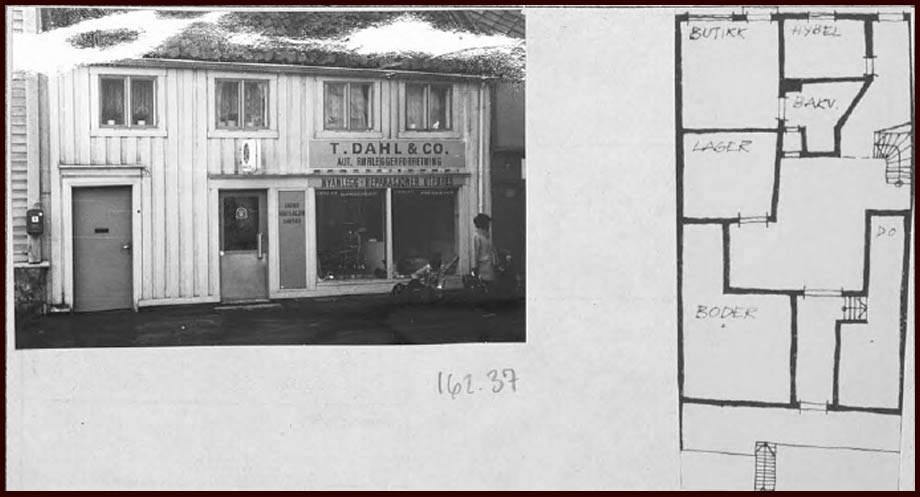 T. DAHL & CO.
AUT. RØRLEGGERFORRETNING
NYANLEGG - REPARASJONER UTFØRES
162.37
BUTIKK
HYBEL
BAKV.
LAGER
DO
BODER